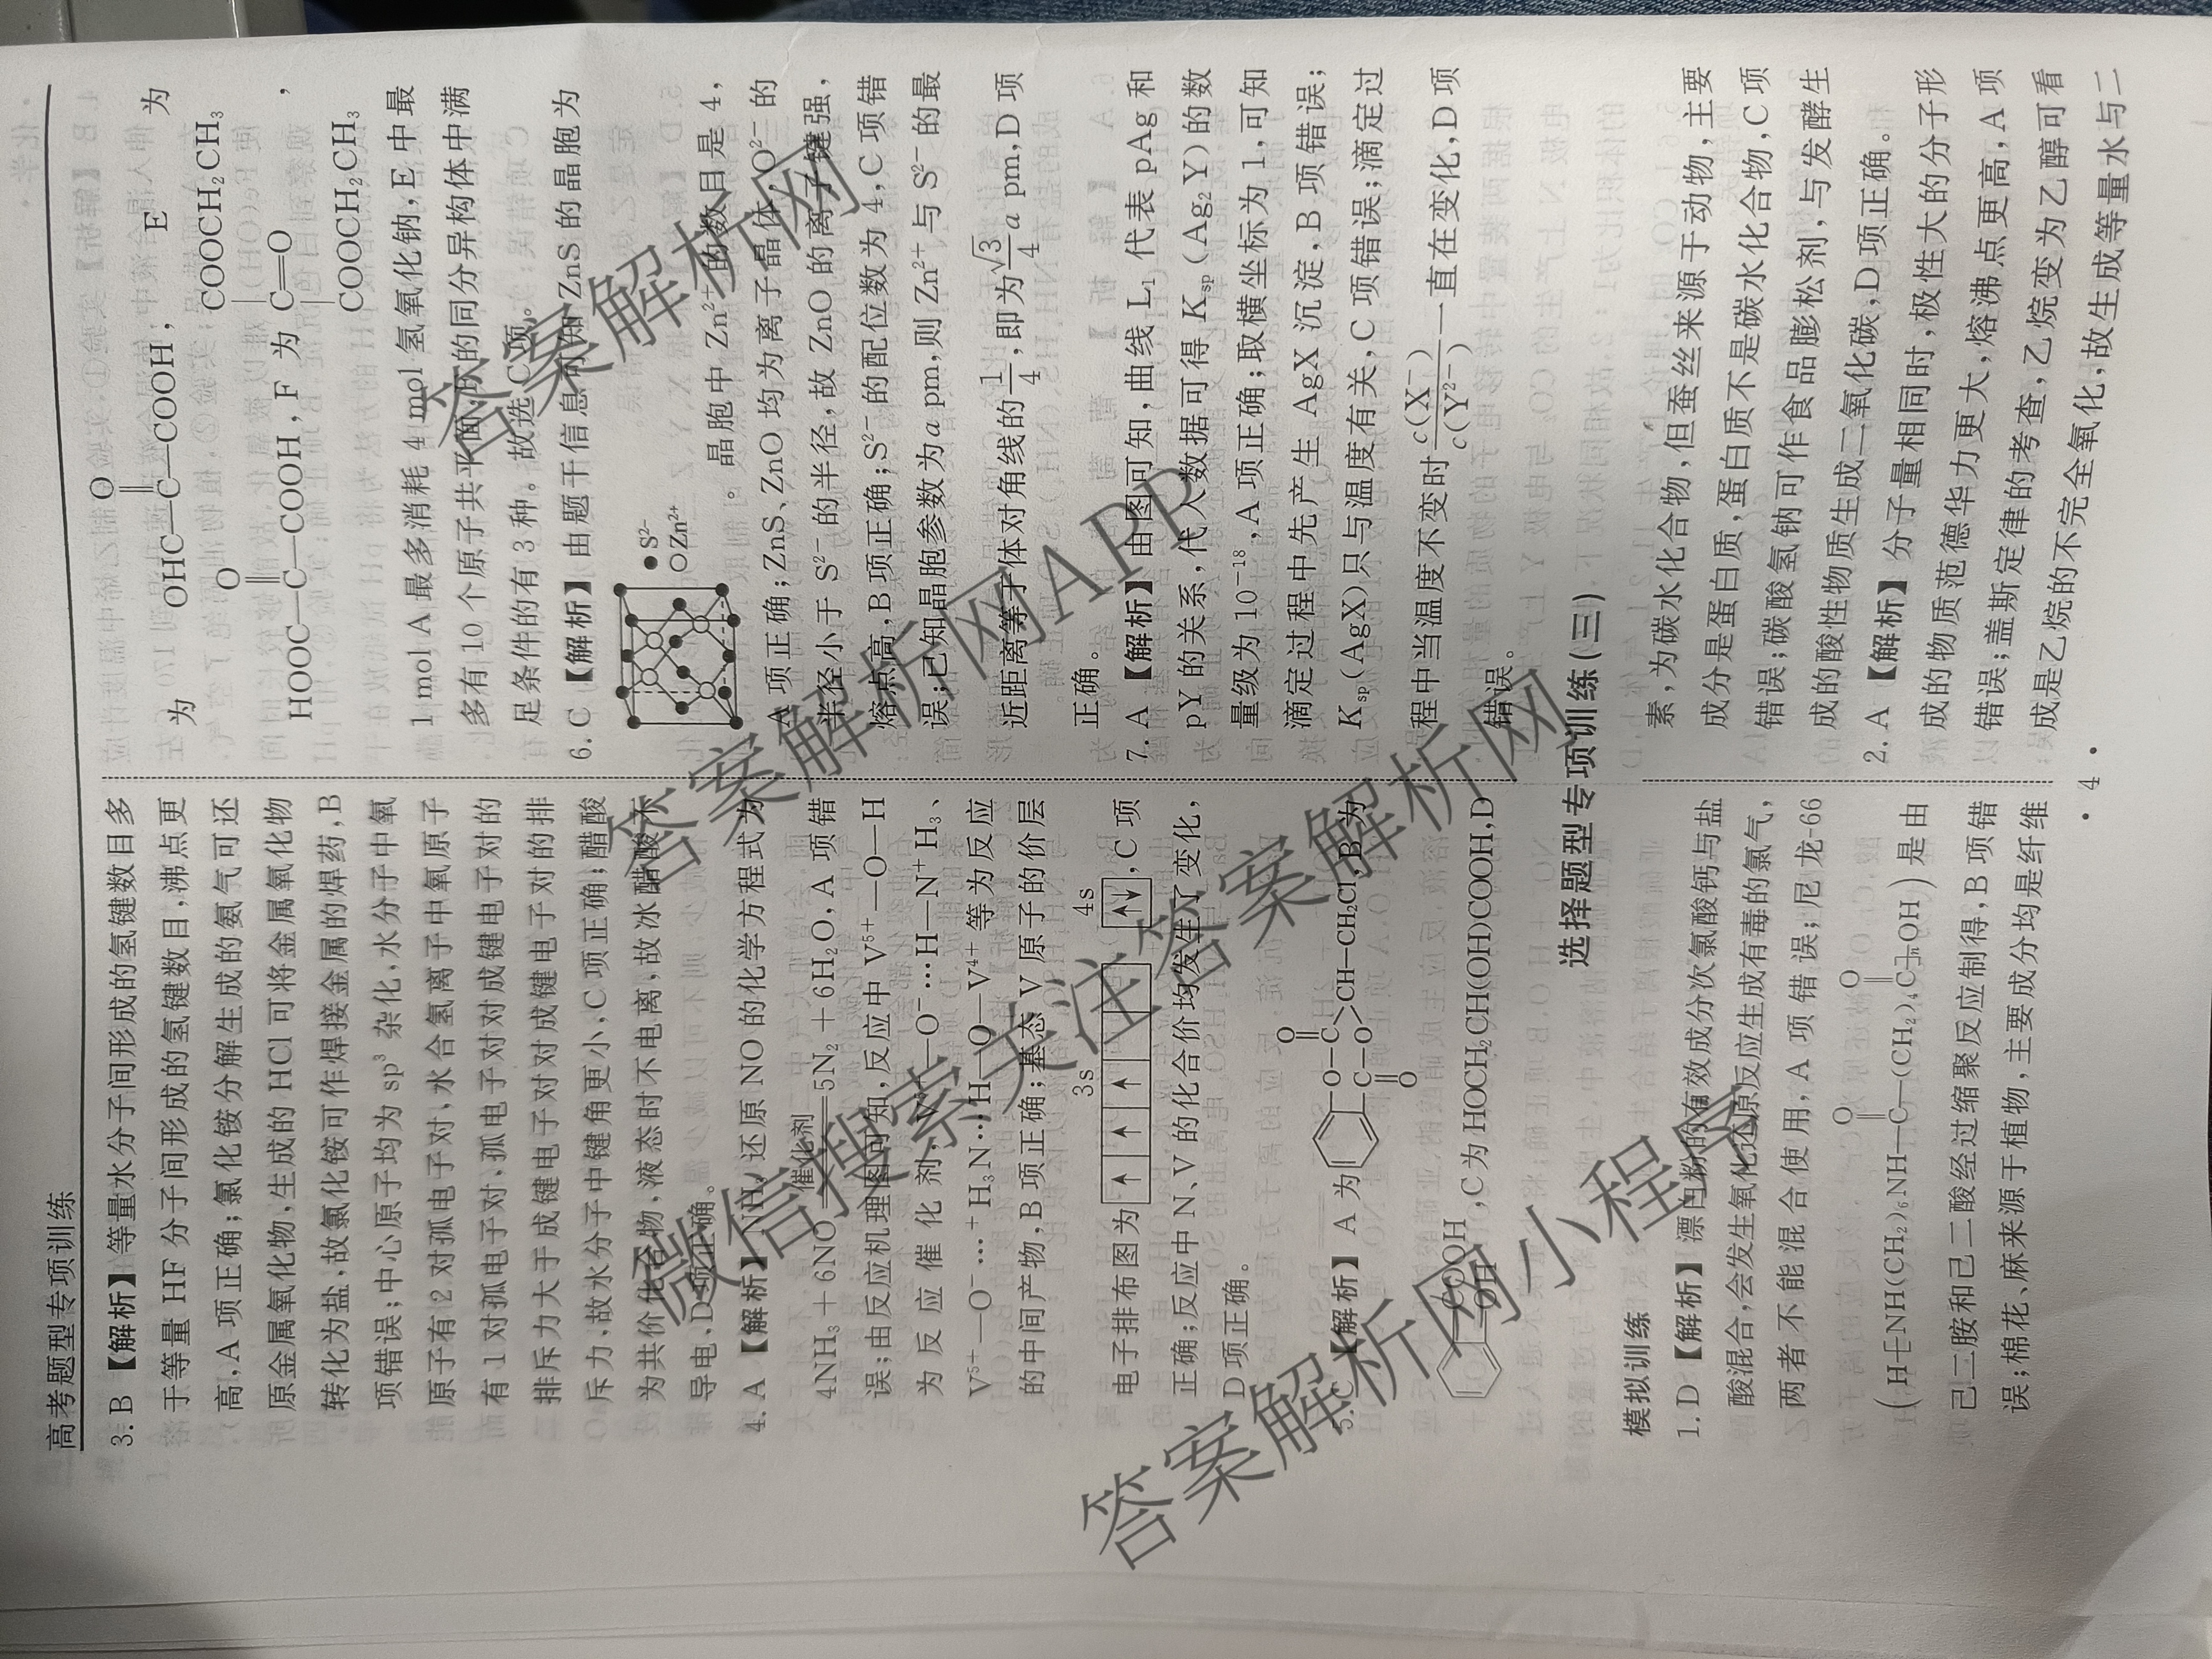 高考题型专项训练
3. B 【解析】等量水分子间形成的氢键数目多
于等量 HF 分子间形成的氢键数目,沸点更
高,A 项正确;氯化铵分解生成的氨气可还
原金属氧化物,生成的 HCl 可将金属氧化物
转化为盐,故氯化铵可作焊接金属的焊药,B
项错误;中心原子均为 sp³ 杂化,水分子中氧
原子有 2 对孤电子对,水合氢离子中氧原子
有 1 对孤电子对,孤电子对对成键电子对的
排斥力大于成键电子对对成键电子对的排
斥力,故水分子中键角更小,C 项正确;醋酸
为共价化合物,液态时不电离,故冰醋酸不
导电,D 项正确。
4. A 【解析】NH₃ 还原 NO 的化学方程式为
4NH₃ + 6NO 催化剂 5N₂ + 6H₂O,A 项错
误;由反应机理图可知,反应中 V⁵⁺—O—H
为反应催化剂,
—O⁻…H—N⁺H₃、
V⁵⁺—O⁻…⁺H₃N…H—O—V⁴⁺ 等为反应
的中间产物,B 项正确;基态 V 原子的价层
3s 4s
电子排布图为 ↑ ↑ ↑ ↑↓ ,C 项
正确;反应中 N、V 的化合价均发生了变化,
D 项正确。
5. C 【解析】 A 为
O
O—C
CH—CH₂Cl,B 为
C—O
O
COOH
OH
,C 为 HOCH₂CH(OH)COOH,D
为
O
OHC—C—COOH, E 为
O
HOOC—C—COOH,F 为
COOCH₂CH₃
C=O
COOCH₂CH₃
,
1 mol A 最多消耗 4 mol 氢氧化钠,E 中最
多有 10 个原子共平面,
的同分异构体中满
足条件的有 3 种。故选 C 项。
6. C 【解析】由题干信息可知 ZnS 的晶胞为
●S²⁻
○Zn²⁺
。晶胞中 Zn²⁺ 的数目是 4,
A 项正确;ZnS、ZnO 均为离子晶体,O²⁻ 的
半径小于 S²⁻ 的半径,故 ZnO 的离子键强,
熔点高,B 项正确;S²⁻ 的配位数为 4,C 项错
误;已知晶胞参数为 a pm,则 Zn²⁺ 与 S²⁻ 的最
近距离等于体对角线的 1/4,即为 √3/4 a pm,D 项
正确。
7. A 【解析】由图可知,曲线 L₁ 代表 pAg 和
pY 的关系,代入数据可得 Kₛₚ(Ag₂Y)的数
量级为 10⁻¹⁸,A 项正确;取横坐标为 1,可知
滴定过程中先产生 AgX 沉淀,B 项错误;
Kₛₚ(AgX)只与温度有关,C 项错误;滴定过
程中当温度不变时 c(X⁻)/c(Y²⁻) 一直在变化,D 项
错误。
选择题型专项训练(三)
模拟训练
1. D 【解析】漂白粉的有效成分次氯酸钙与盐
酸混合,会发生氧化还原反应生成有毒的氯气,
两者不能混合使用,A 项错误;尼龙-66
(H⁅NH(CH₂)₆NH—C(=O)—(CH₂)₄C(=O)⁆ₙOH)是由
己二胺和己二酸经过缩聚反应制得,B 项错
误;棉花、麻来源于植物,主要成分均是纤维
素,为碳水化合物,但蚕丝来源于动物,主要
成分是蛋白质,蛋白质不是碳水化合物,C 项
错误;碳酸氢钠可作食品膨松剂,与发酵生
成的酸性物质生成二氧化碳,D 项正确。
2. A 【解析】分子量相同时,极性大的分子形
成的物质范德华力更大,熔沸点更高,A 项
错误;盖斯定律的考查,乙烷变为乙醇可看
成是乙烷的不完全氧化,故生成等量水与二
· 4 ·
答案解析网
答案解析网APP
微信搜索 关注答案解析网
答案解析网小程序